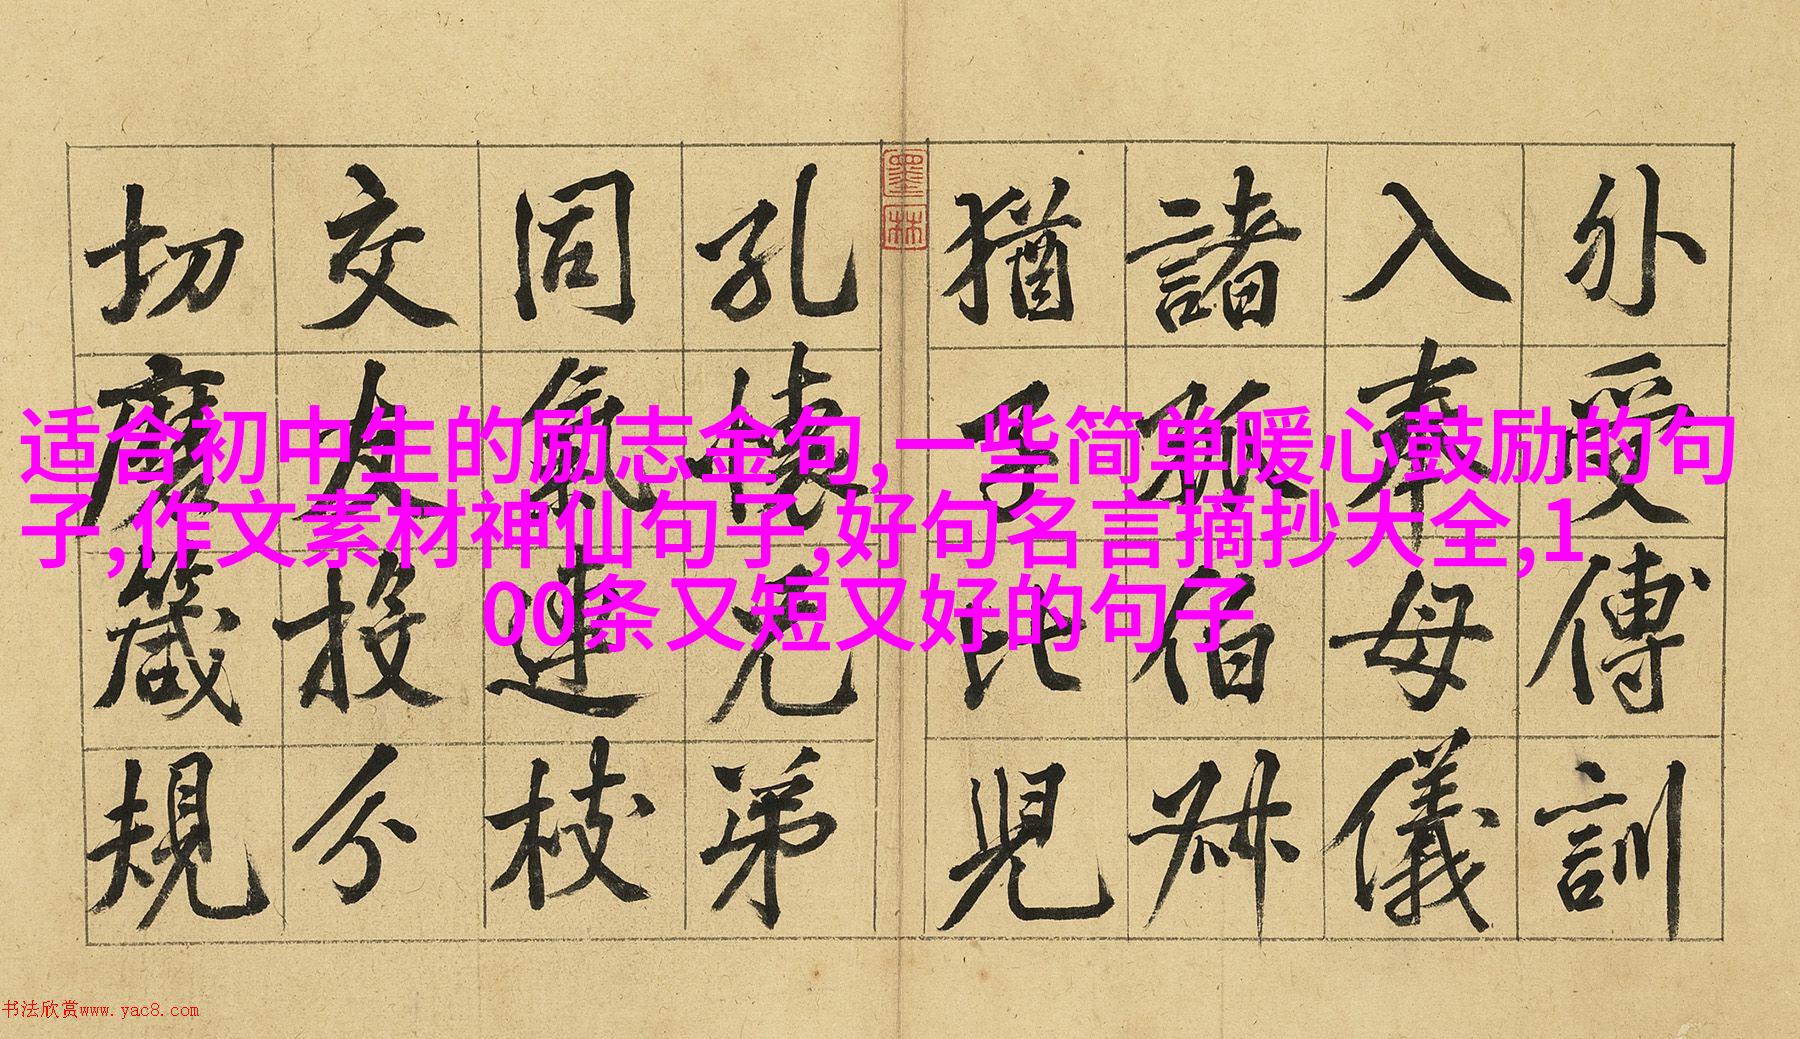 外受傅訓
入奉母儀
諸姑伯叔
猶子比兒
墨林
孔懷兄弟
同氣連枝
交友投分
切磨箴規
适合初中生的励志金句,一些简单暖心鼓励的句
子,作文素材神仙句子,好句名言摘抄大全,1
00条又短又好的句子
书法欣赏www.yac8.com